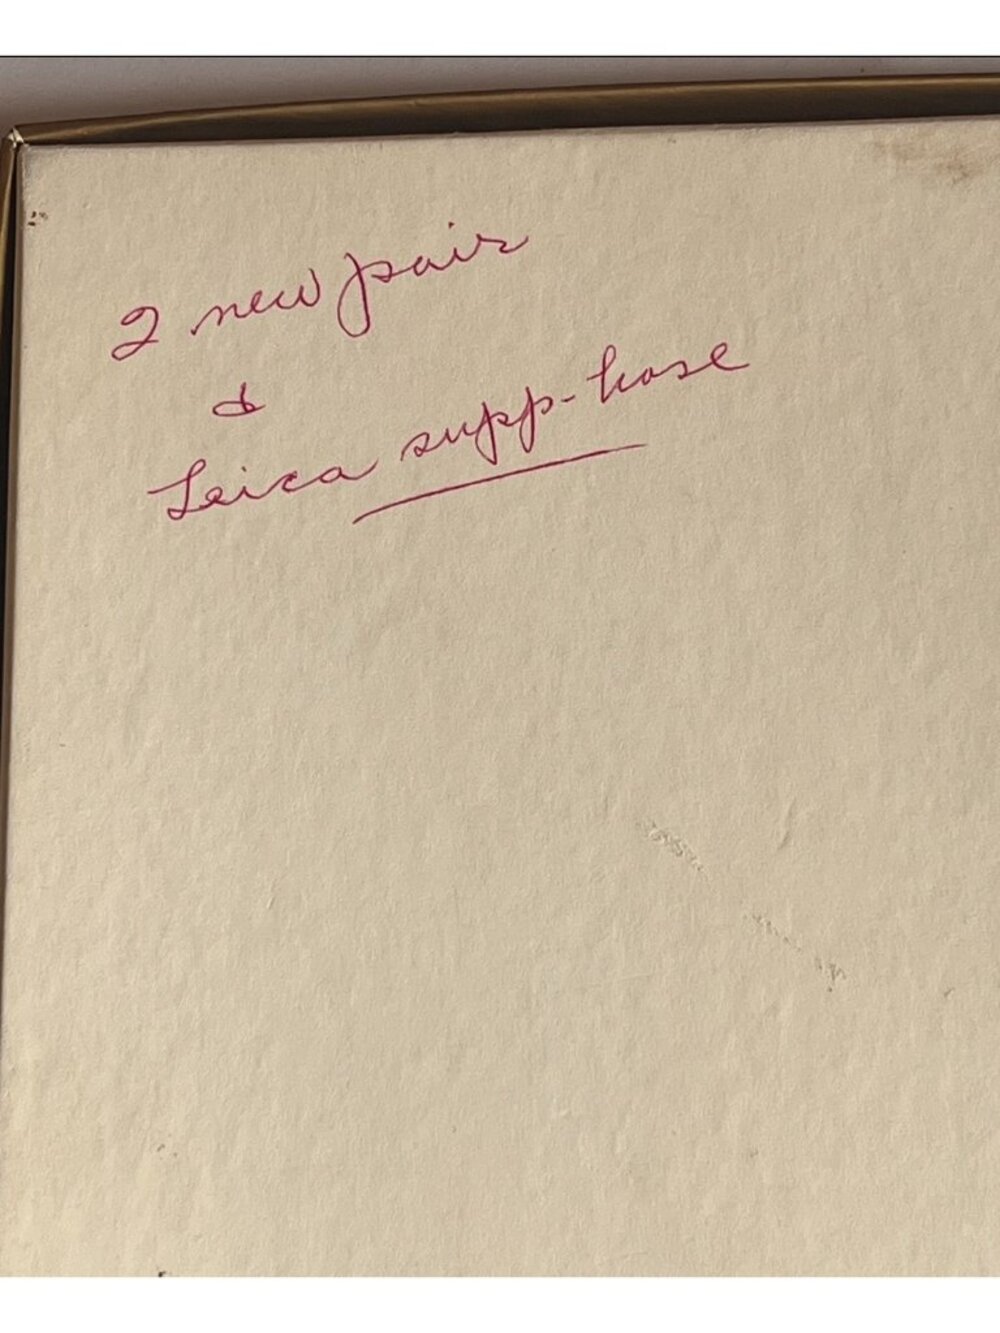 2 new pair
&
Leica supp-hose